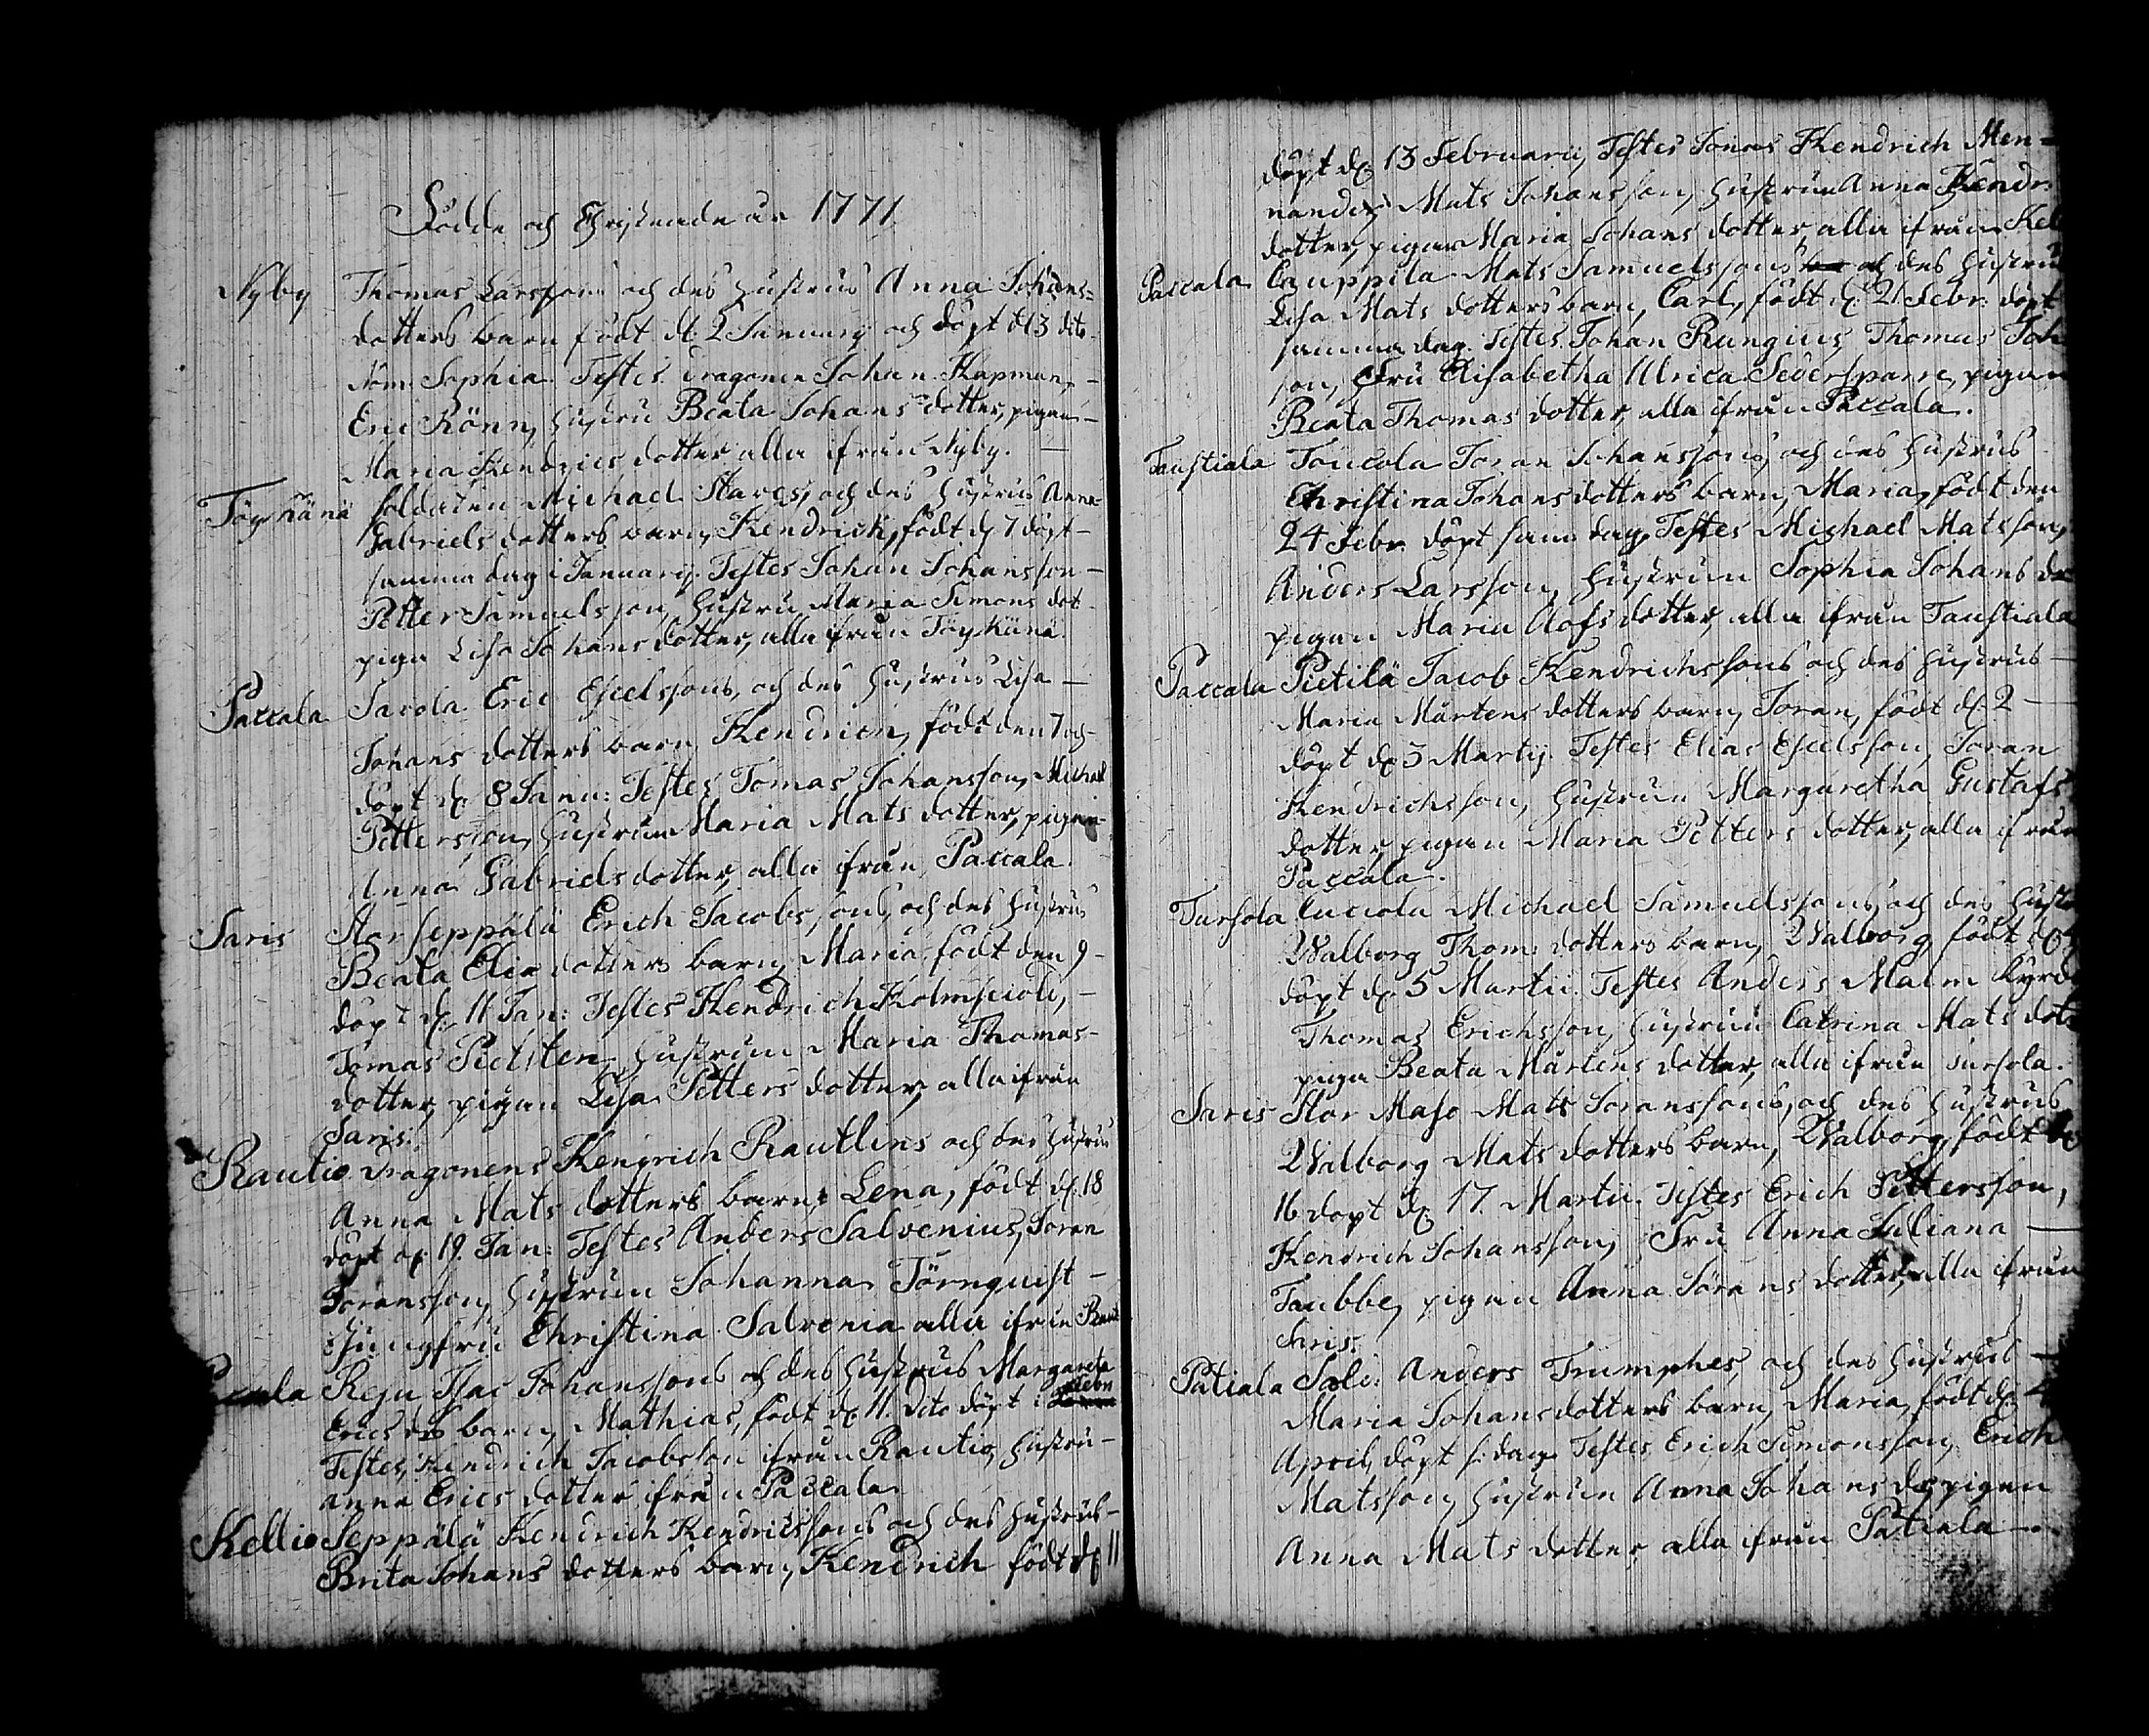 Födde och Christnade år 1771
Nyby Thomas Larssons och des hustrus Anna Johans=
dotters barn födt d. 2 January och döpt d 3 dito
Nom. Sophia. Testes Dragonen Johan Kapman, -
Eric Rönn, hustru Beata Johans dotter, pigan -
Maria Hendrics dotter alla ifrån Nyby. -
Töykänä Soldaten Michael Stares, och des hustrus Anna
Gabriels dotters barn, Hendrich, födt d. 7 döpt -
samma dag i January. Testes Johan Johansson -
Petter Samuelsson, hustru Maria Simons dot.
piga Lisa Johans dotter, alla ifrån Töykänä
Paccala Jacola Eric Eskelssons, och des hustrus Lisa -
Johans dotters barn, Hendrich, födt den 7 och
döpt d. 8 Janu: Testes Tomas Johansson, Michael
Pettersson, hustrun Maria Mats dotter, pigan
Anna Gabriels dotter, alla ifrån Paccala.
Saris Storseppälä Erich Jacobssons, och des hustrus
Beata Elie dotters barn, Maria, födt den 9 -
döpt d. 11 Jan: Testes Hendrich -
Tomas hustrun Maria Thomas-
dotter, pigan Lisa Petters dotter, alla ifrån
Saris.
Rautio Dragonens Hendrich Rautlins och des hustrus
Anna Mats dotters barn, Lena, födt d. 18
döpt d. 19. Jan: Testes Anders Salvenius, Jöran
Göransson, hustrun Johanna Törnquist -
Jungfru Christina Salvenia alla ifrån
Reju Isac Johanssons och des hustrus Margareta
Erics ds barn, Mathias, födt d. 11. dito döpt i Febr
Testes, Hendrich Jacobsson ifrån Rautio, hustru -
Anna Erics dotter ifrån Paccala.
Kellio Seppälä Hendrich Hendricssons och des hustrus -
Brita Johans dotters barn, Hendrich födt d. 11
döpt d. 13 Februarii, Testes Jönas Hendrich Men-
nander Mats Johansson, hustrun Anna Hendr:
dotter, pigan Maria Johans dotter alla ifrån Kel
Paccala Cauppila Mats Samuelssons och des hustrus
Lisa Mats dotters barn, Carl, födt d. 21 Febr: döpt
samma dag. Testes Johan Rungius, Thomas Joh
son, Fru Elisabetha Ulrica Sedersparre, pigan
Beata Thomas dotter, alla ifrån Paccala.
Taustiala Touccola Jöran Johanssons, och des hustrus
Christina Johans dotters barn, Maria, födt den
24 Febr. döpt sam. dag. Testes Michael Matsson,
Anders Larsson, hustrun Sophia Johans do
pigan Maria Olofs dotter, alla ifrån Taustiala
Paccala Pietilä Jacob Hendrichssons och des hustrus -
Maria Mårtens dotters barn, Jöran, födt d. 2 -
döpt d. 3 Martij. Testes Elias Eskelsson, Jöran
Hendrichsson, hustrun Margaretha Gustafs
dotter, pigan Maria Petters dotter, alla ifrån
Paccala.
Tursola Cuccola Michael Samuelssons, och des hustr
Walborg Thom: dotters barn, Walborg, födt d.
döpt d. 5 Martii. Testes Anders Malm
Thomas Erichsson, hustrun Catrina Mats dot
piga Beata Mårtens dotter, alla ifrån Tursola.
Saris Stor Maso Mats Jöranssons, och des hustrus
Walborg Mats dotters barn, Walborg, födt d.
16 döpt d. 17. Martii. Testes Erich Pettersson,
Hendrich Johansson, Fru Anna Juliana -
Taubbe, pigan Anna Jörans dotter, alla ifrån
Saris.
Patiala Sold: Anders Trumphes, och des hustrus -
Maria Johans dotters barn, Maria, födt d.
April, döpt s. dag. Testes Erich Simonsson, Erich
Matsson, hustrun Anna Johans d, pigan
Anna Mats dotter alla ifrån Patiala -